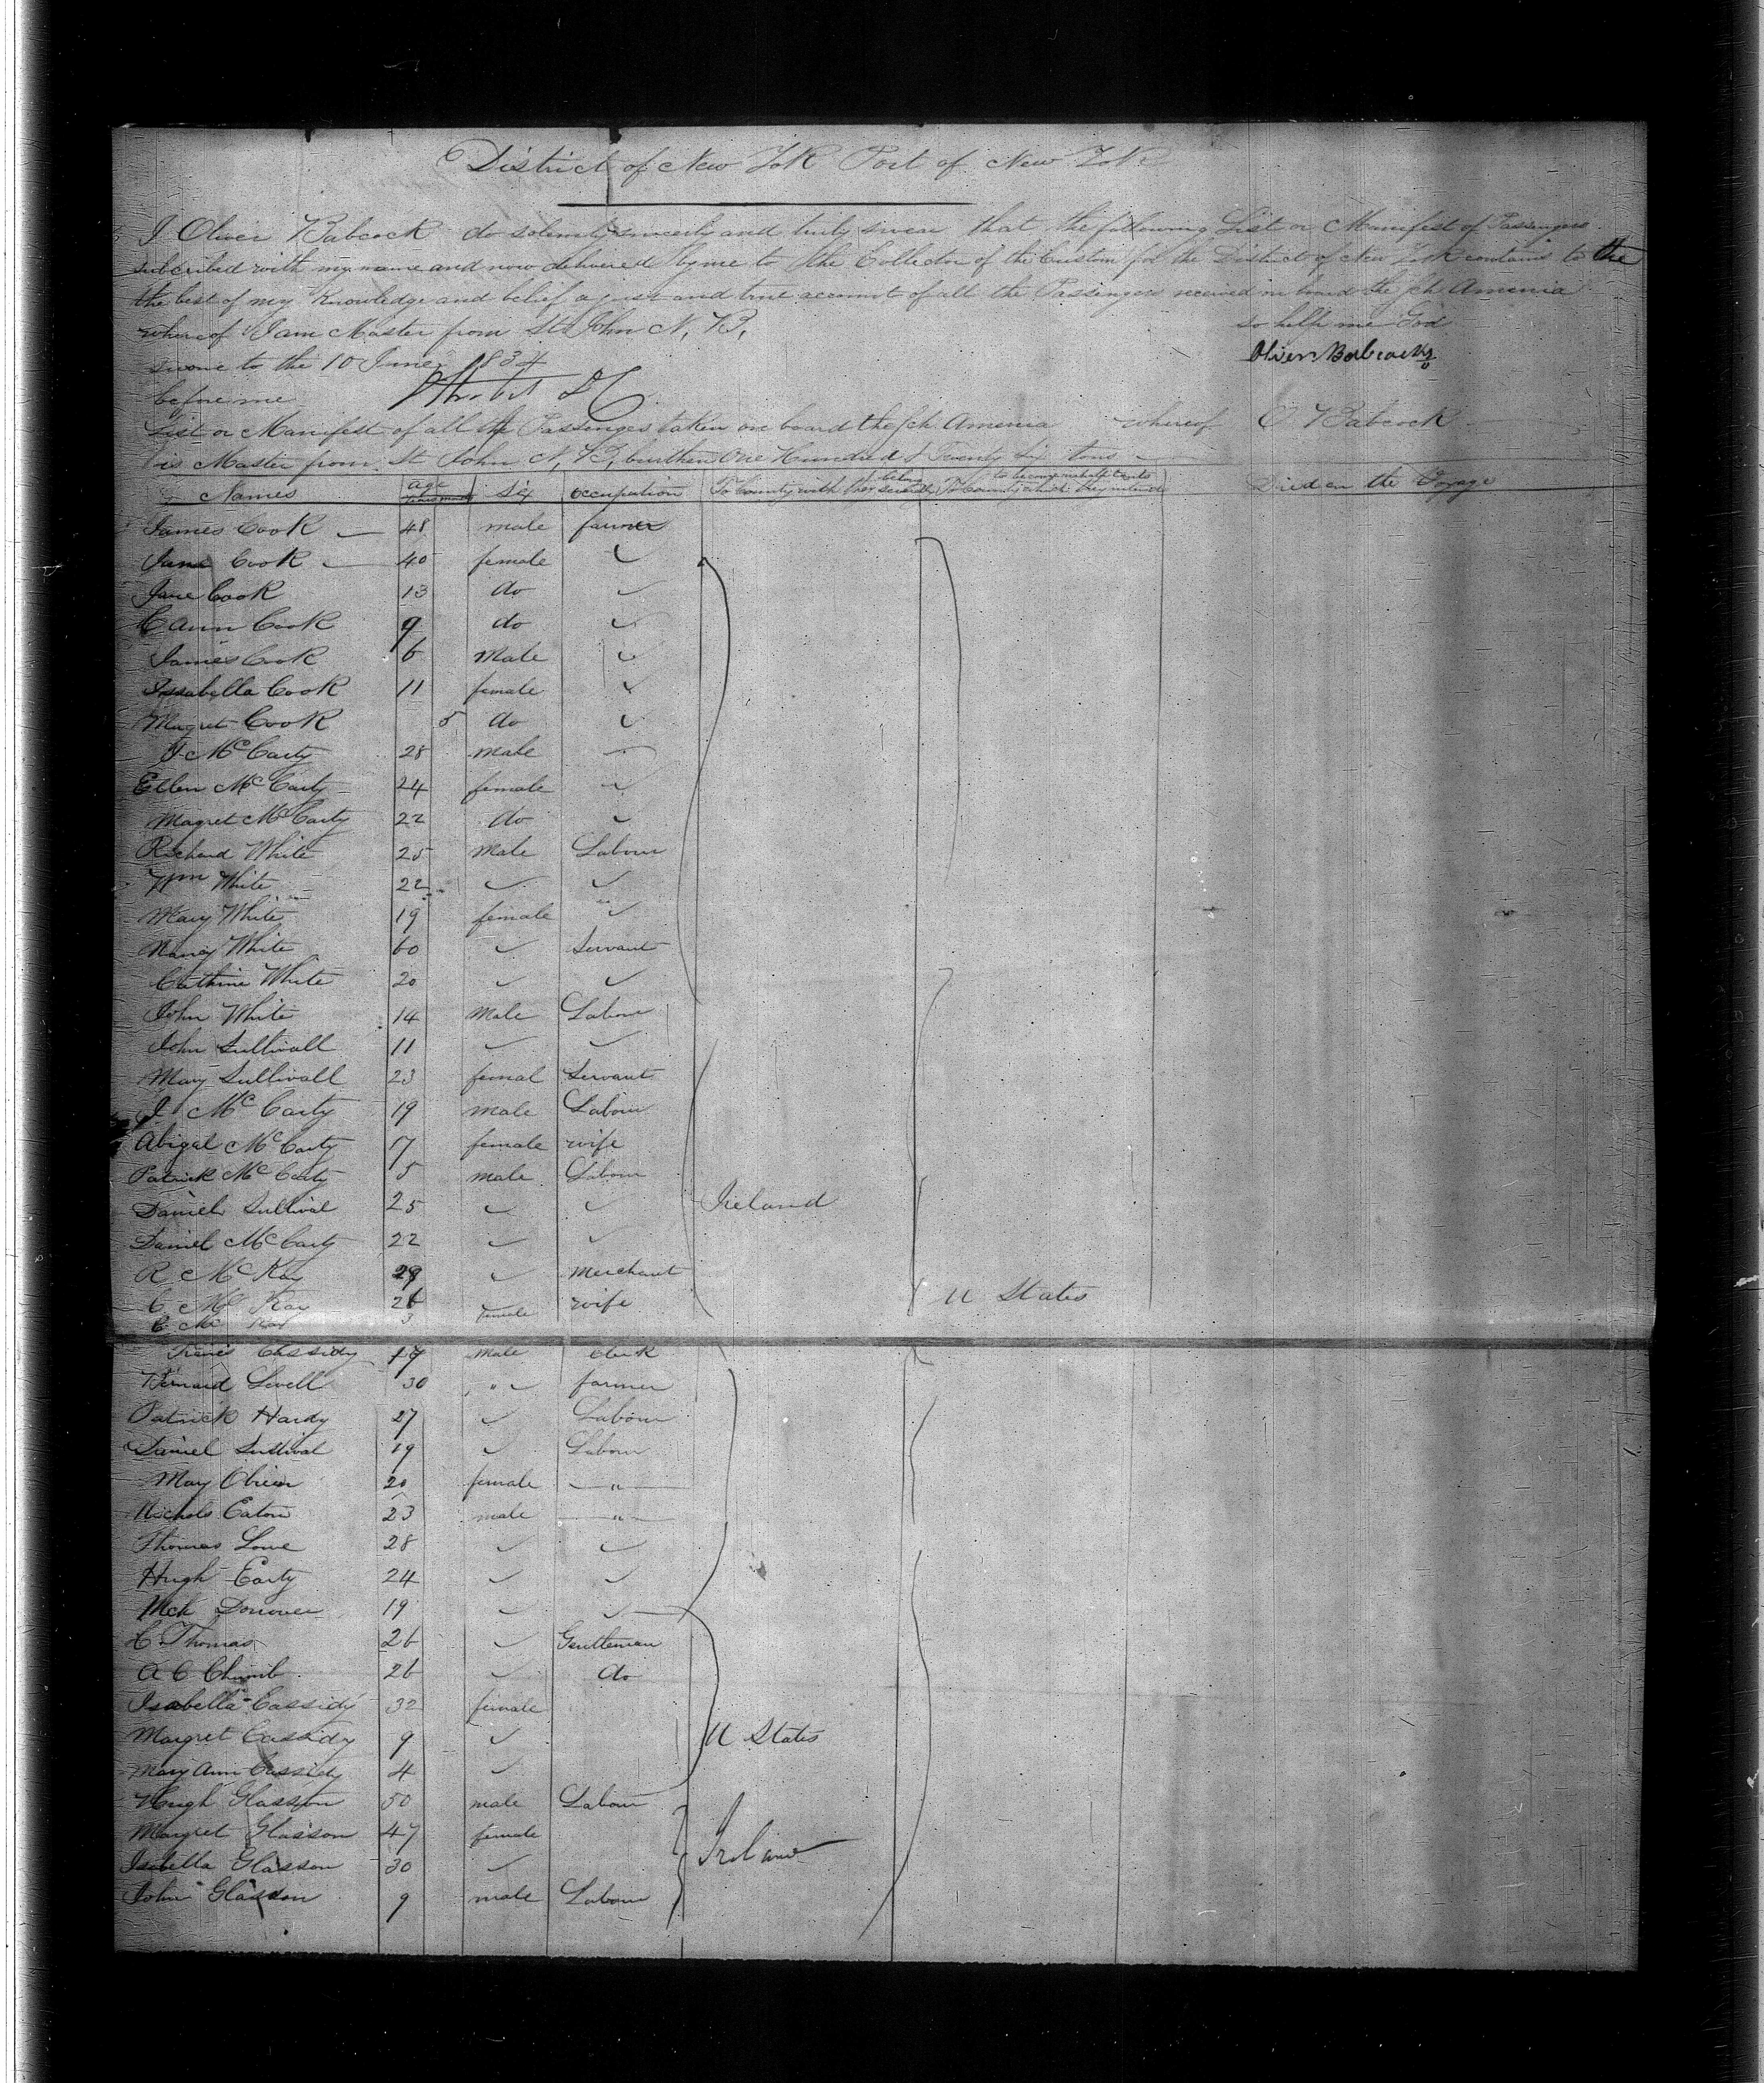 District of New York Port of New York
I Oliver Babcock do solemnly sincerely and truly swear that the following List or Manifest of Passengers
subcribed with my name and now delivered by me to the Collector of the Custom for the District of New York contains to the
the best of my Knowledge and belief a just and true account of all the Passengers received on board the Sch Amenia
whereof I am Master from St John N, B, so help me God
swone to the 10 June 1834 Oliver Babcock
before me
List or Manifest of all the Passenges taken on board the Sch Amenia whereof O Babcock
is Master from St John N, B, burthen One Hundred & Twenty Six tons
Names Age Sex occupation To County with they belong Died on the Voyage
James Cook 48 male farmer
Jane Cook 40 female
Jane Cook 13 do
C Ann Cook 9 do
James Cook 6 Male
Issabella Cook 11 female
Magret Cook 5 do
J McCarty 28 male
Ellen McCarty 24 female
Magret McCarty 22 do
Richard White 25 Male Labour
Wm White 22
Mary White 19 female
Nancy White 60 Servant
Cathine White 20
John White 14 Male Labour
John Sullivall 11
Mary Sullivall 23 femal Servant
J McCarty 19 male Labour
Abigal McCarty 17 female wife
Patrick McCarty 5 male Labour
Daniel Sullival 25 Ireland
Daniel McCarty 22
R McKay 29 merchant
C McKay 26 female wife U States
C McKay 3
Cassidy 19 male clerk
Bernard Sewell 30 farmer
Patrick Hardy 27 Labour
Daniel Sullival 19 Labour
Mary Obrien 20 female "
Nichols Eaton 23 male "
Thomas Lowe 28
Hugh Earty 24
Mck Donover 19
C Thomas 26 Gentleman
A C Chumb 26 do
Isabella Cassidy 32 female
Margret Cassidy 9 U States
Mary Ann Cassidy 4
Hugh Glasson 50 male Labour
Margret Glasson 47 female
Isabella Glasson 30 Ireland
John Glasson 9 male Labour